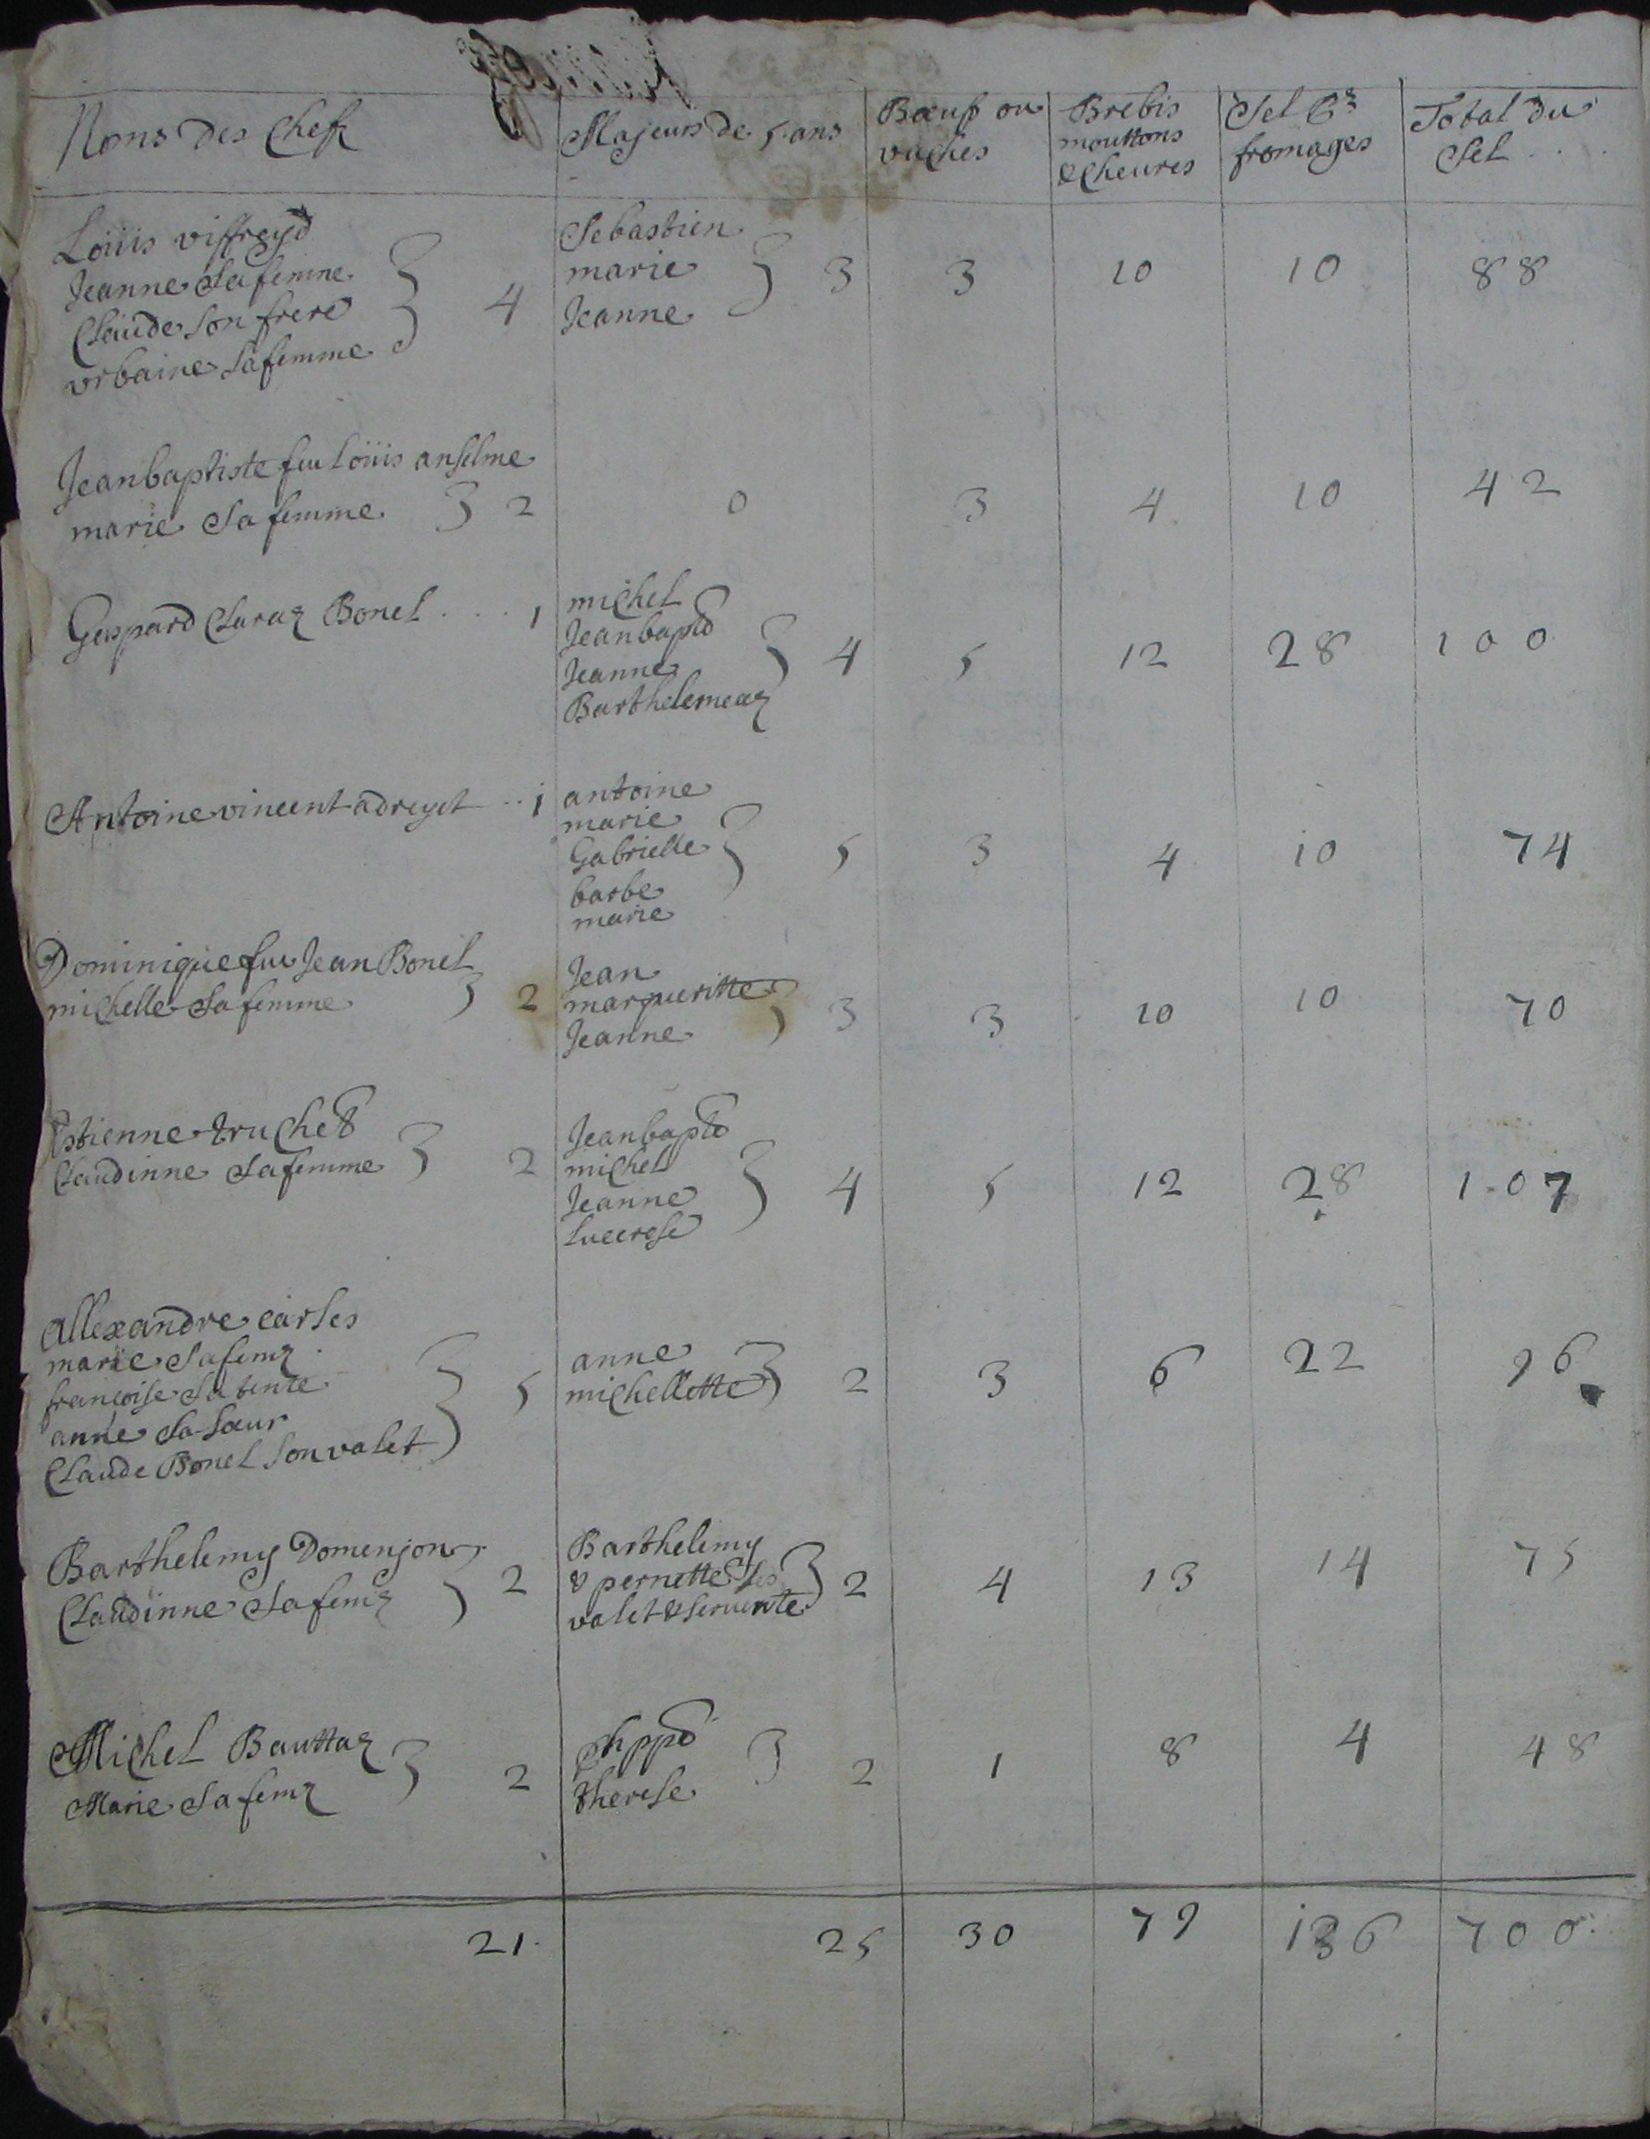 Noms des Chefz | Majeurs de 5 ans | Bœufs ou vaches | Brebis mouttons & Cheures | Sel Pr fromages | Total du Sel
Loüis viffreyd
Jeanne Sa femme
Claude Son frere
vrbaine Sa femme } 4 | Sebastien
marie
Jeanne } 3 | 3 | 10 | 10 | 88
Jeanbaptiste feu Loüis anselme
marie Sa femme } 2 | 0 | 3 | 4 | 10 | 42
Gaspard Claraz Bonel . . . 1 | michel
Jeanbapte
Jeanne
Barthelemeaz } 4 | 5 | 12 | 28 | 100
Antoine vincent adreyet . . 1 | antoine
marie
Gabrielle
barbe
marie } 5 | 3 | 4 | 10 | 74
Dominique feu Jean Bonel
michelle Sa femme } 2 | Jean
margueritte
Jeanne } 3 | 3 | 10 | 10 | 70
Estienne truchet
Claudinne Sa femme } 2 | Jeanbapte
michel
Jeanne
Luccrese } 4 | 5 | 12 | 28 | 107
Allexandre carles
marie Sa femz
francoise Sa tente
anne Sa Sœur
Claude Bonel Son valet } 5 | anne
michellette } 2 | 3 | 6 | 22 | 96
Barthelemy Domenjon
Claudinne Sa femz } 2 | Barthelemy
& pernette Ses
valet & Seruente } 2 | 4 | 13 | 14 | 75
Michel Bauttaz
Marie Sa femz } 2 | Phppe
therese } 2 | 1 | 8 | 4 | 48
21 | 25 | 30 | 79 | 136 | 700